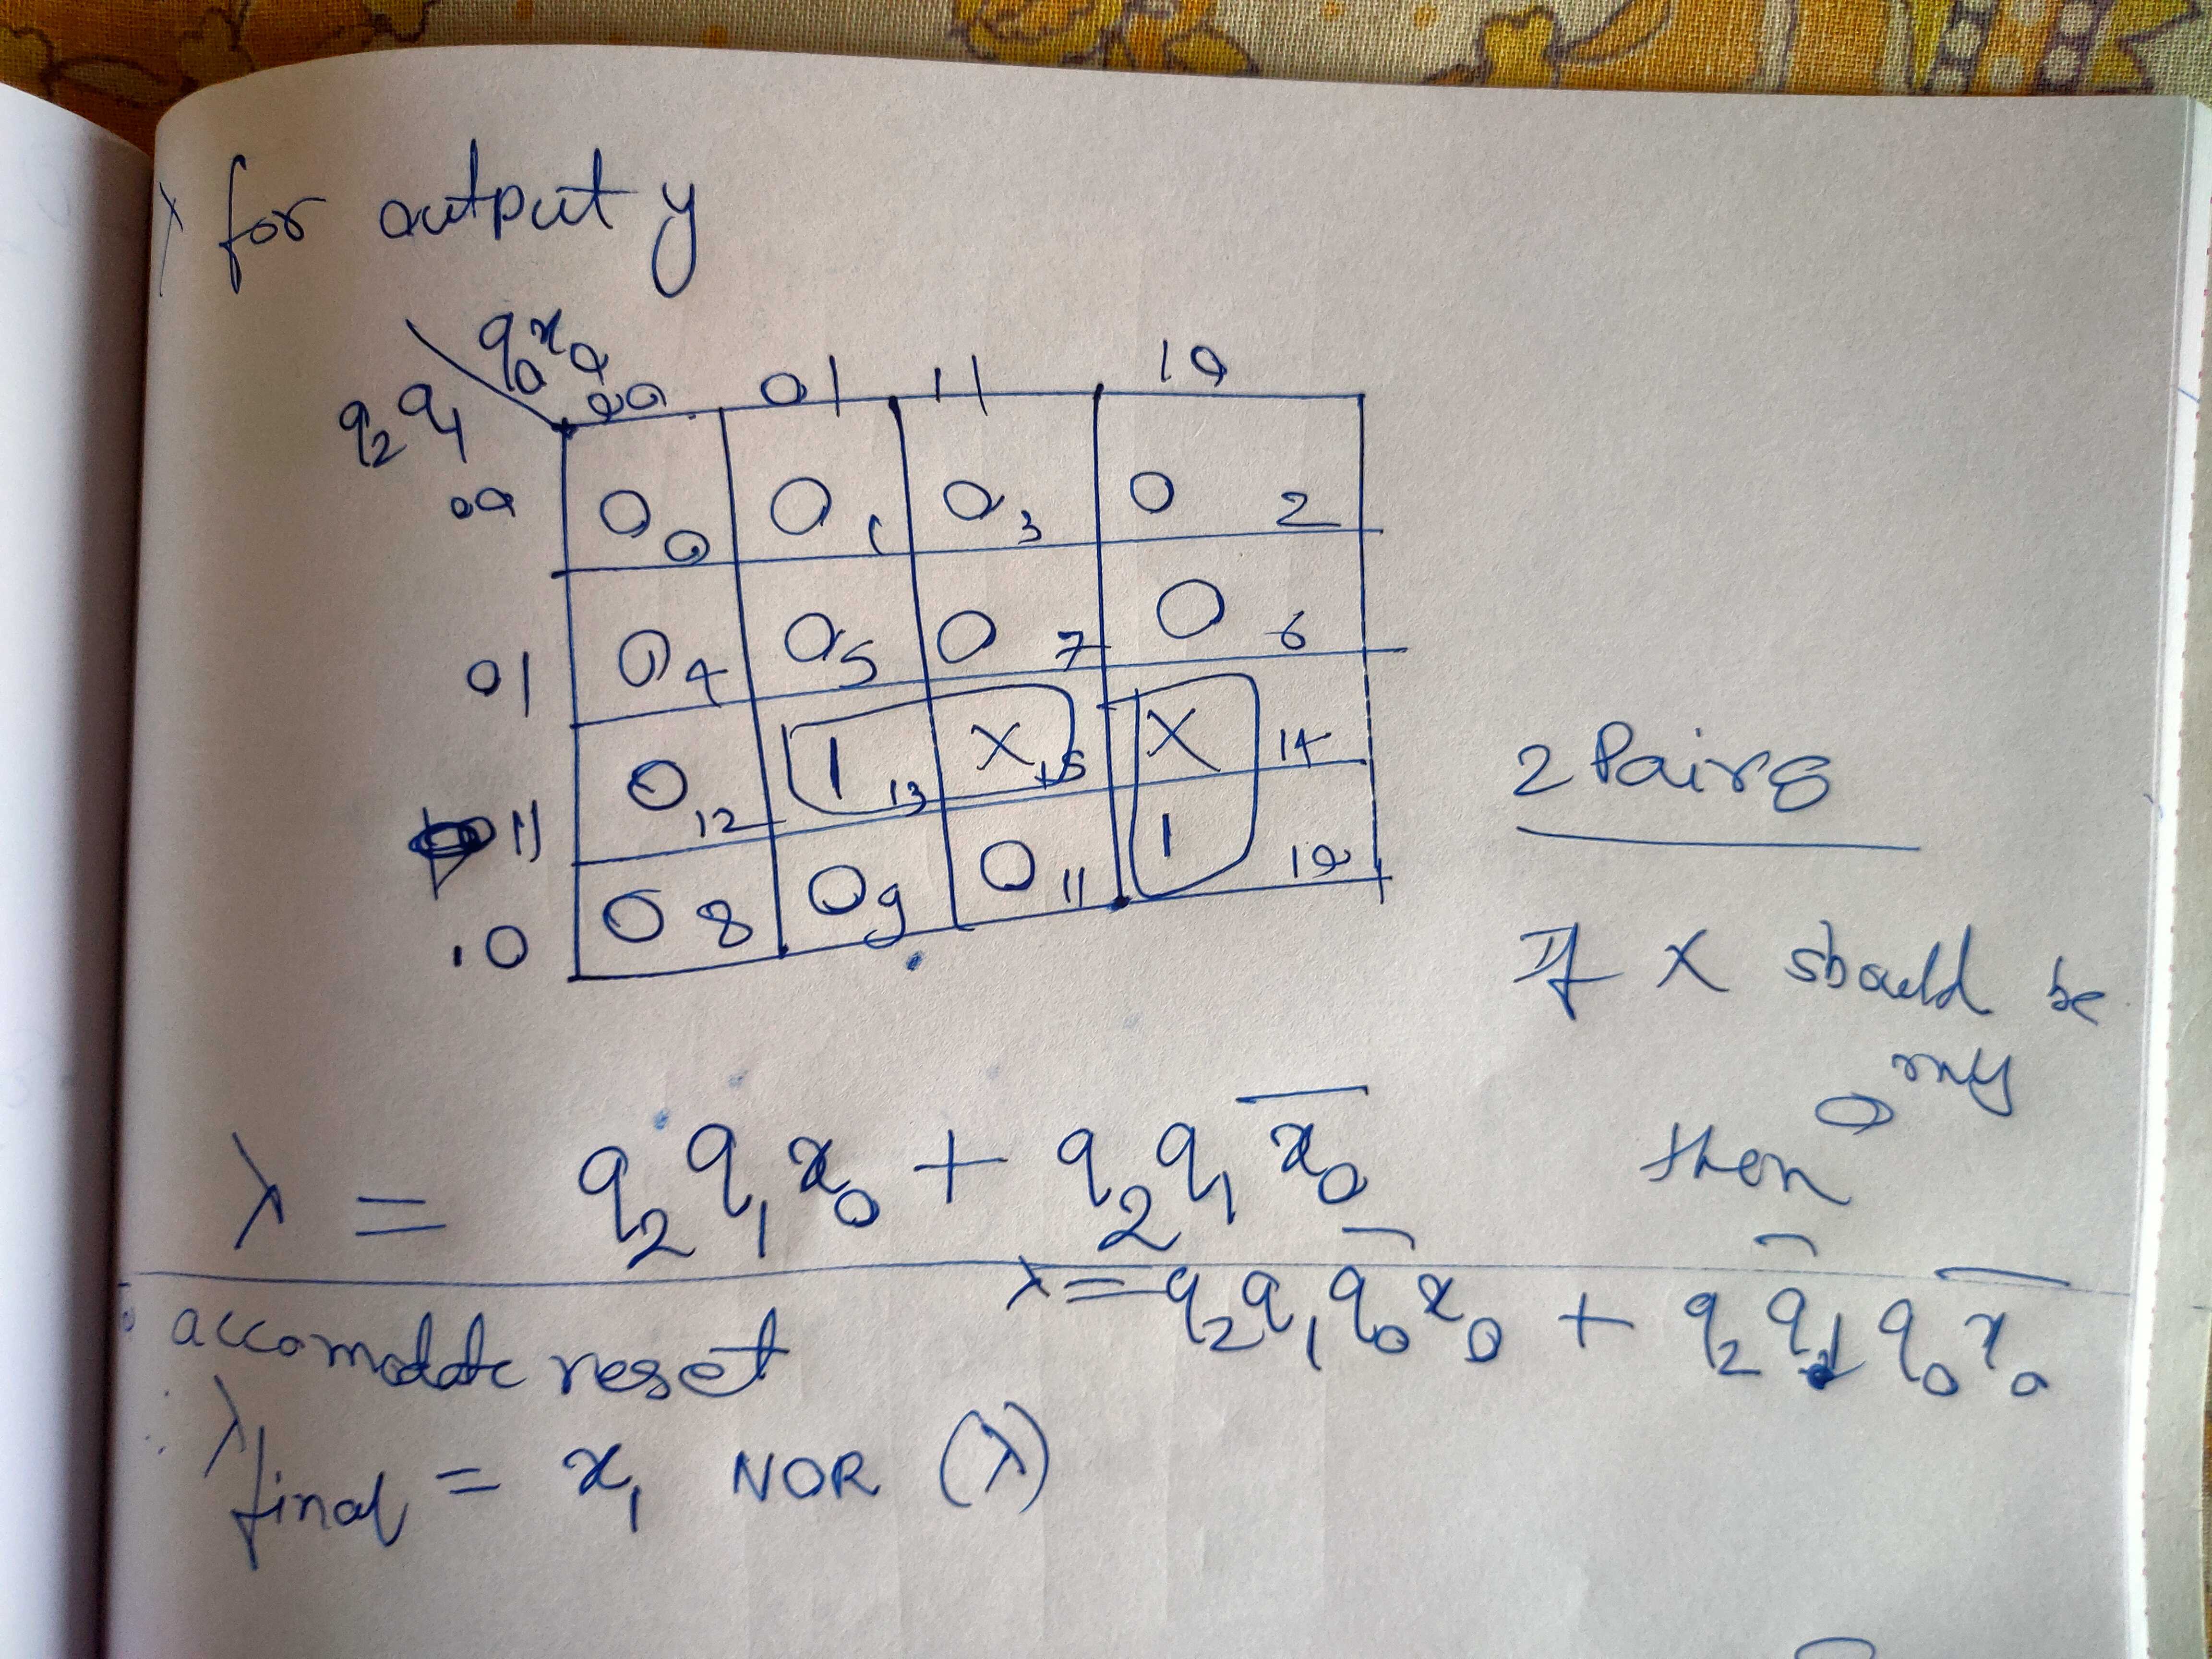 λ for output y
q₀x₀
q₂q₁ 00 01 11 10
00 0 0 0 1 0 3 0 2
01 0 4 0 5 0 7 0 6
11 0 12 1 13 X 15 X 14
10 0 8 0 9 0 11 1 10
2 Pairs
If X should be
only
then
λ = q₂q₁x₀ + q₂q₁x̅₀
λ = q₂q₁q̅₀x₀ + q₂q̅₁q₀x̅₀
accomodate reset
λfinal = x₁ NOR (λ)